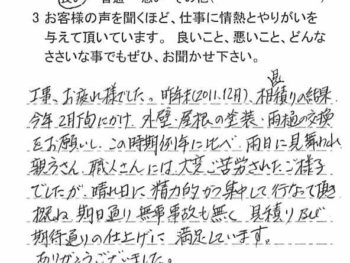 3 お客様の声を聞くほど、仕事に情熱とやりがいを
与えて頂いています。 良いこと、悪いこと、どんな
ささいな事でもぜひ、お聞かせ下さい。
工事、お疲れ様でした。昨年末(2011.12月)、相積りの結果
今年2月旬にかけ、外壁・屋根の塗装・雨樋の交換
をお願いし、この時期例年に比べ、雨日に見舞われ
親方さん、職人さんには、大変ご苦労されたご様子
でしたが、晴れ日に精力的かつ集中して行なって頂き
概ね期日通り無事事故も無く、見積り及び
期待通りの仕上げに満足しています。
ありがとうございました。